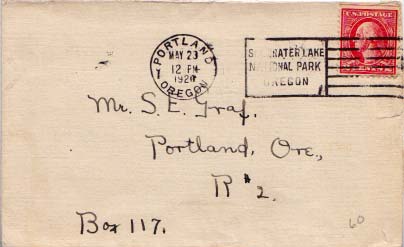 PORTLAND
MAY 23
12 PM
1920
OREGON
SEE CRATER LAKE
NATIONAL PARK
OREGON
U.S. POSTAGE
Mr. S. E. Graf,
Portland, Ore.,
R #2.
Box 117.
60